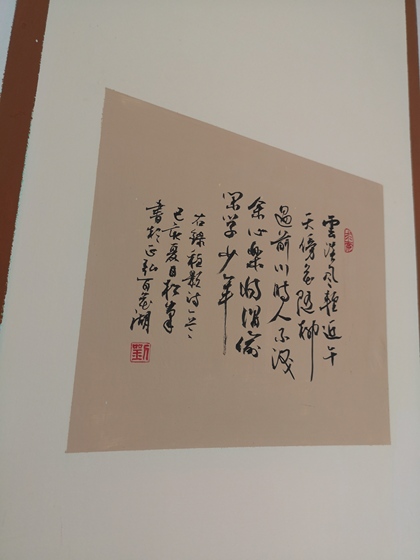 雲淡風輕近午
天傍花随柳
過前川時人不識
余心樂將謂偷
閑學少年
右錄程颢诗一首
己亥夏日
書於正弘百花湖